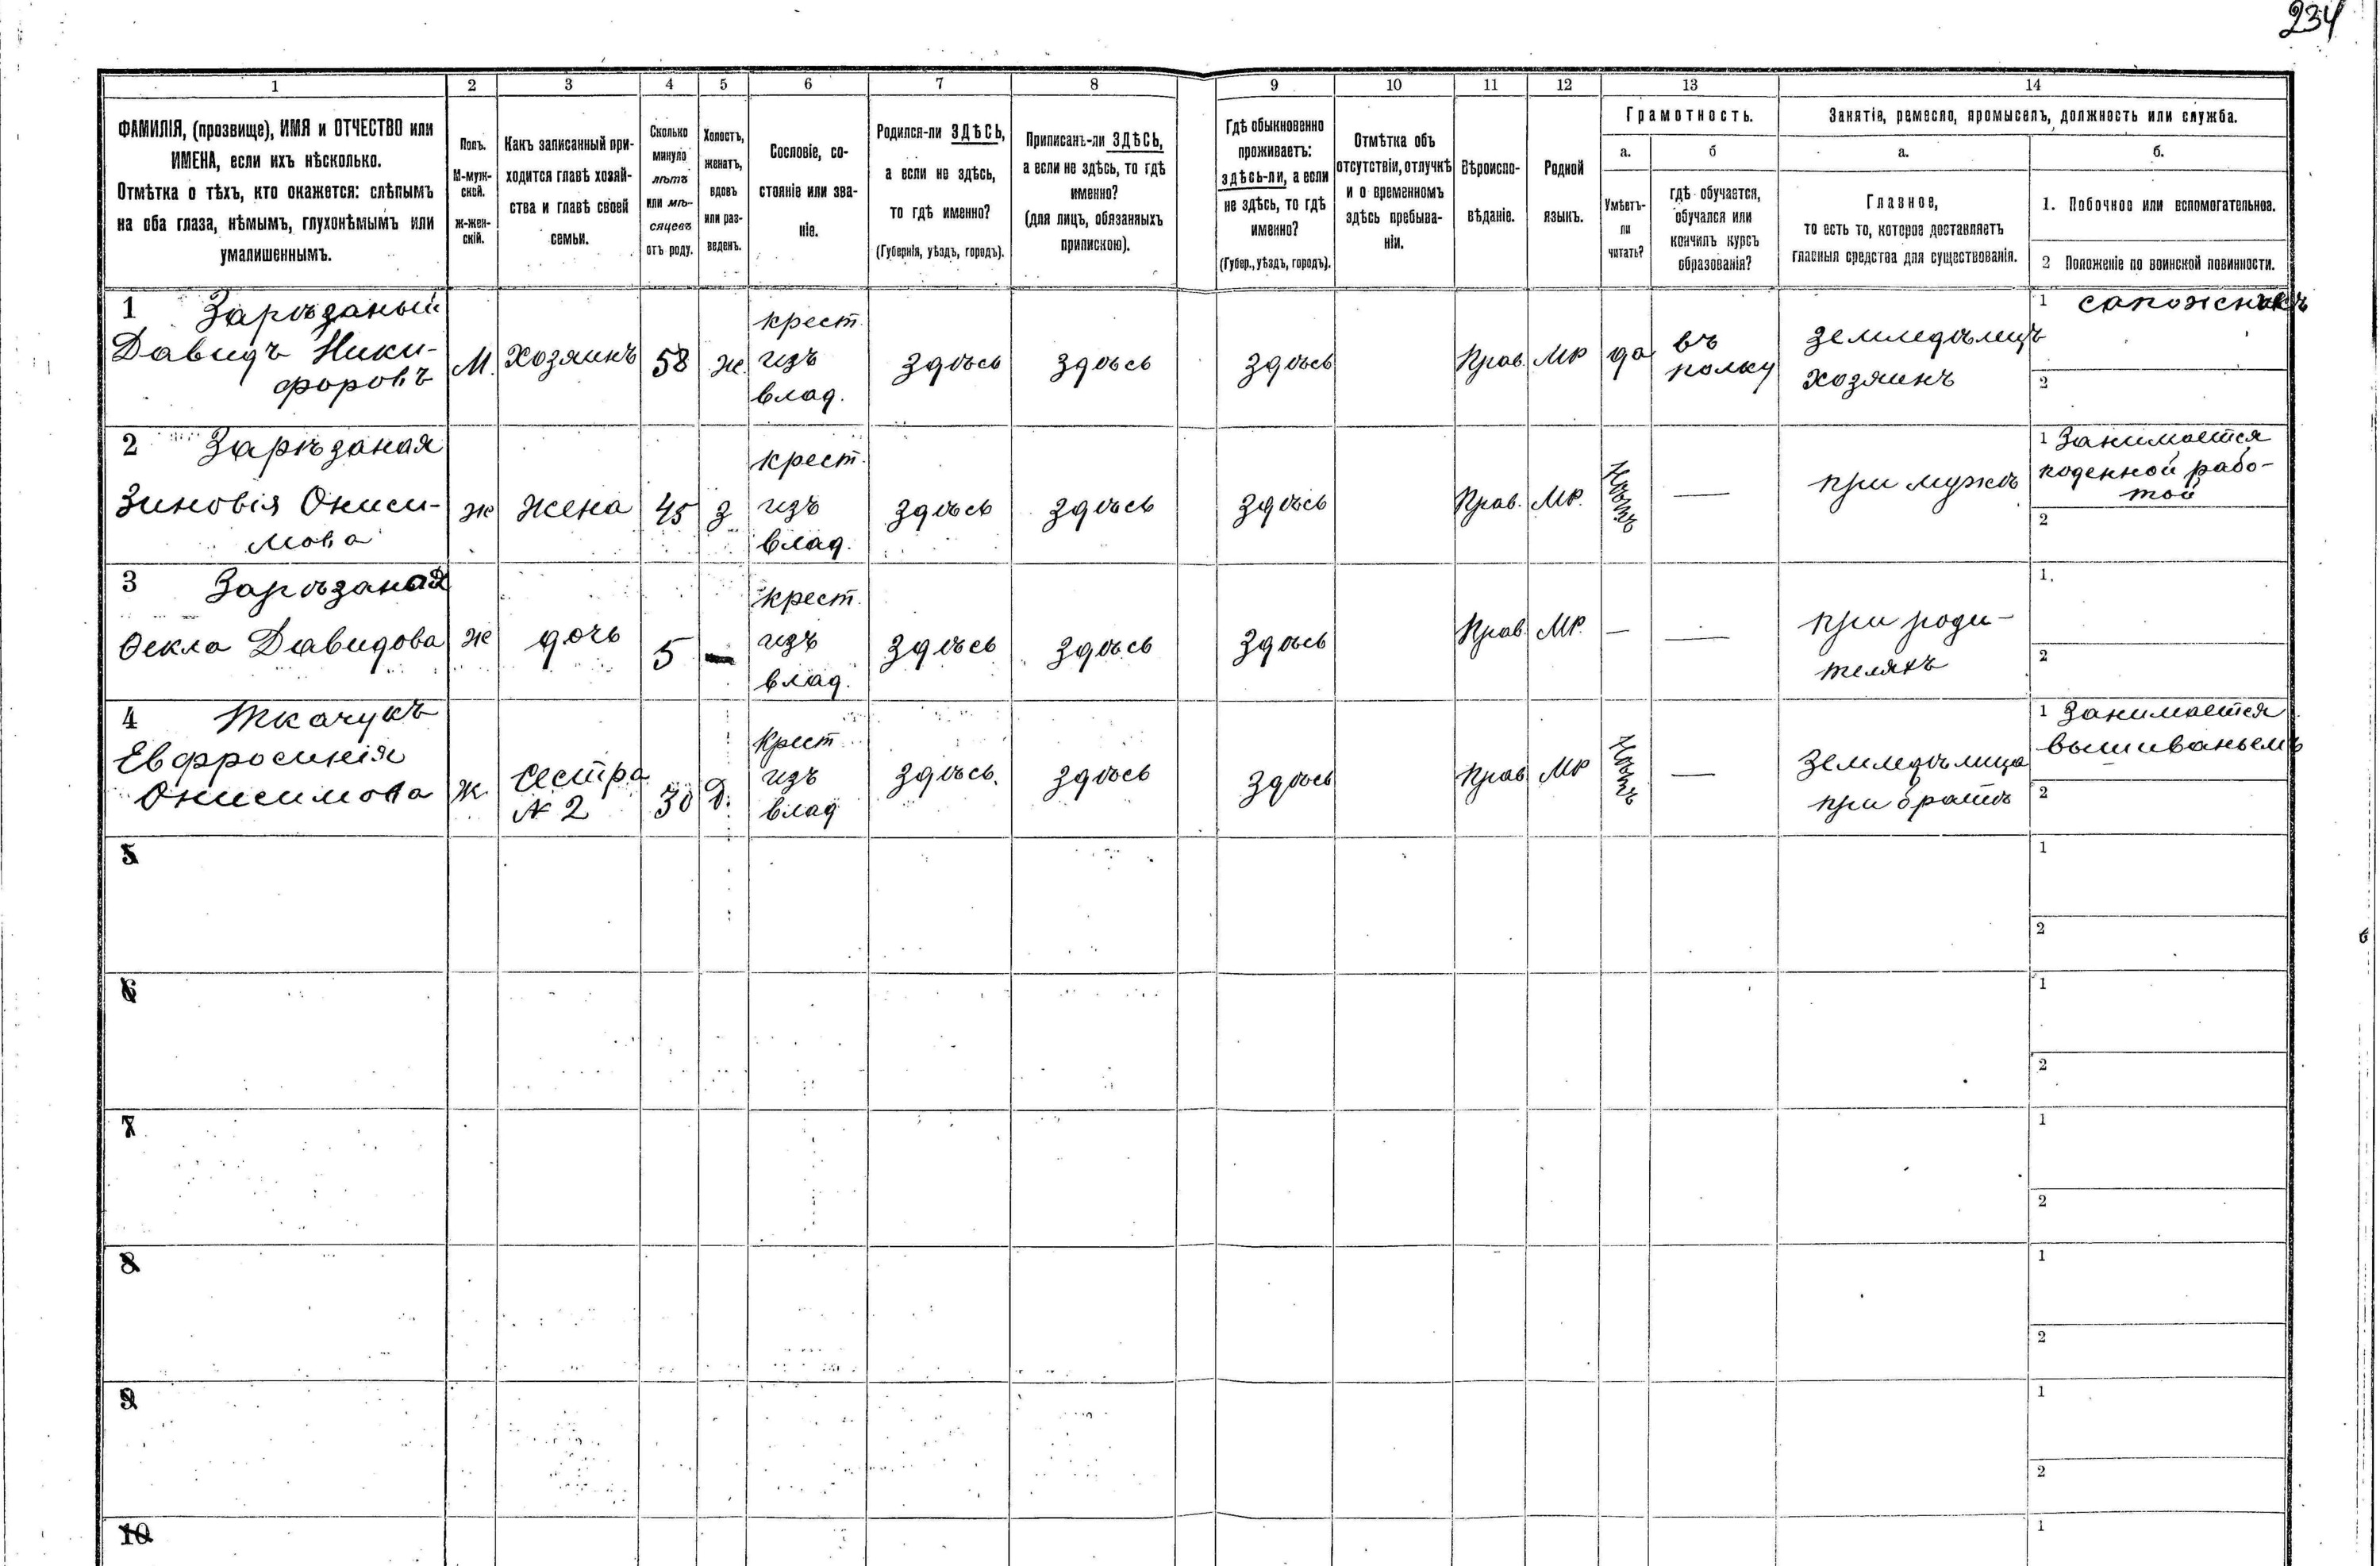 234
1 2 3 4 5 6 7 8 9 10 11 12 13 14
ФАМИЛІЯ, (прозвище), ИМЯ и ОТЧЕСТВО или
ИМЕНА, если ихъ нѣсколько.
Отмѣтка о тѣхъ, кто окажется: слѣпымъ
на оба глаза, нѣмымъ, глухонѣмымъ или
умалишеннымъ.
Полъ.
М-муж-
ской.
ж-жен-
скій.
Какъ записанный при-
ходится главѣ хозяй-
ства и главѣ своей
семьи.
Сколько
минуло
лѣтъ
или мѣ-
сяцевъ
отъ роду.
Холостъ,
женатъ,
вдовъ
или раз-
веденъ.
Сословіе, со-
стояніе или зва-
ніе.
Родился-ли ЗДѢСЬ,
а если не здѣсь,
то гдѣ именно?
(Губернія, уѣздъ, городъ).
Приписанъ-ли ЗДѢСЬ,
а если не здѣсь, то гдѣ
именно?
(для лицъ, обязанныхъ
припискою).
Гдѣ обыкновенно
проживаетъ:
здѣсь-ли, а если
не здѣсь, то гдѣ
именно?
(Губер., уѣздъ, городъ).
Отмѣтка объ
отсутствіи, отлучкѣ
и о временномъ
здѣсь пребыва-
ніи.
Вѣроиспо-
вѣданіе.
Родной
языкъ.
Грамотность.
а.
Умѣетъ-
ли
читать?
б
гдѣ обучается,
обучался или
кончилъ курсъ
образованія?
Занятія, ремесло, промыселъ, должность или служба.
а.
Главное,
то есть то, которое доставляетъ
главныя средства для существованія.
б.
1. Побочное или вспомогательное.
2 Положеніе по воинской повинности.
1 Зарѣзаный
Давидъ Ники-
форовъ
М.
Хозяинъ
58
ж.
крест.
изъ
влад.
здѣсь
здѣсь
здѣсь
Прав.
МР
да
въ
полку
земледѣлецъ
хозяинъ
1 сапожникъ
2
2 Зарѣзаная
Зиновія Ониси-
мова
ж
жена
45
З
крест.
изъ
влад.
здѣсь
здѣсь
здѣсь
Прав.
МР.
Нѣтъ
—
при мужѣ
1 Занимается
поденной рабо-
той
2
3 Зарѣзаная
Ѳекла Давидова
ж
дочь
5
—
крест.
изъ
влад.
здѣсь
здѣсь
здѣсь
Прав.
МР.
—
—
при роди-
теляхъ
1.
2
4 Ткачукъ
Евфросинія
Онисимова
Ж.
сестра
№ 2
30
Д.
Крест
изъ
влад
здѣсь.
здѣсь
здѣсь
Прав
МР
Нѣтъ
—
земледѣлица
при братѣ
1 Занимается
вышиваньемъ
2
5
1
2
6
1
2
7
1
2
8
1
2
9
1
2
10
1